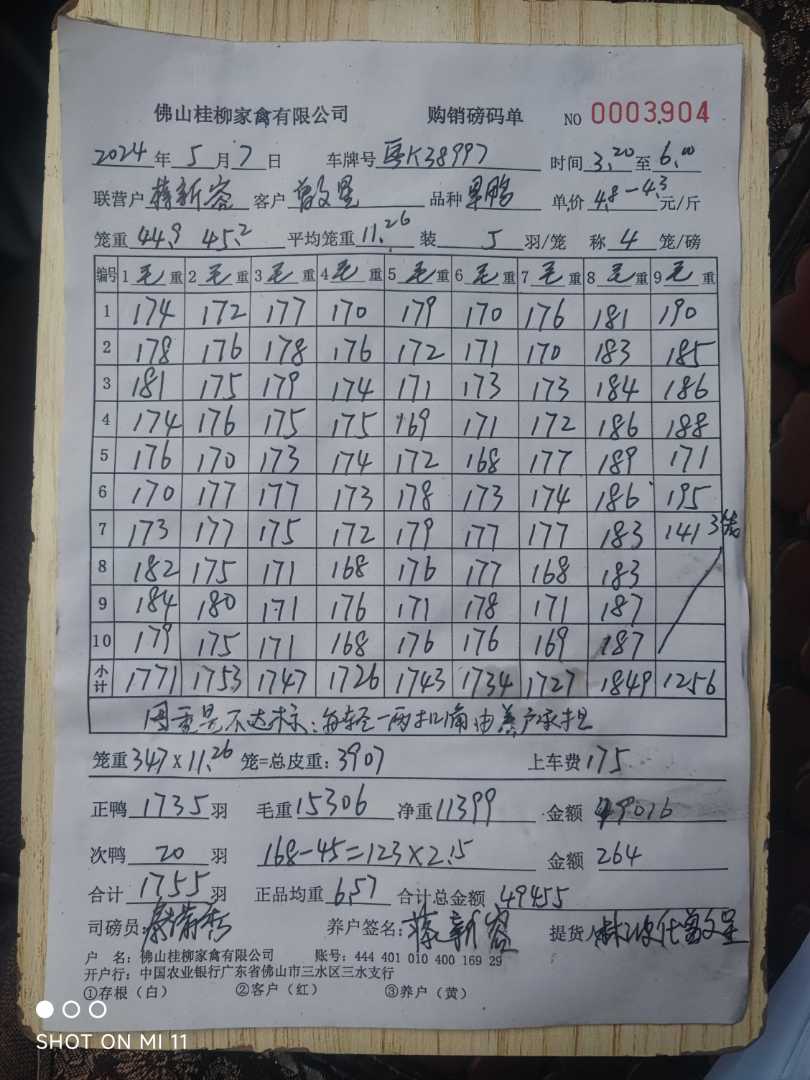 佛山桂柳家禽有限公司 购销磅码单 NO 0003904
2024年5月7日 车牌号 粤K38997 时间 3.20 至 6.00
联营户 蒋新容 客户 曾文星 品种 单价 4.8-4.3 元/斤
笼重 44.9 45.2 平均笼重 11.26 装 5 羽/笼 称 4 笼/磅
编号 1毛重 2毛重 3毛重 4毛重 5毛重 6毛重 7毛重 8毛重 9毛重
1 174 172 177 170 179 170 176 181 190
2 178 176 178 176 172 171 170 183 185
3 181 175 179 174 171 173 173 184 186
4 174 176 175 175 169 171 172 186 188
5 176 170 173 174 172 168 177 189 171
6 170 177 177 173 178 173 174 186 195
7 173 177 175 172 179 177 177 183 141 3笼
8 182 175 171 168 176 177 168 183
9 184 180 171 176 171 178 171 187
10 179 175 171 168 176 176 169 187
小计 1771 1753 1747 1726 1743 1734 1727 1849 1256
因重量不达标:每轻一两扣 由养户承担
笼重 347 X 11.26 笼=总皮重:3907 上车费 175
正鸭 1735 羽 毛重 15306 净重 11399 金额 49016
次鸭 20 羽 168-45=123×2.15 金额 264
合计 1755 羽 正品均重 6.57 合计总金额 49455
司磅员: 养户签名:蒋新容 提货人 曾文星
户 名:佛山桂柳家禽有限公司 账号:444 401 010 400 169 29
开户行:中国农业银行广东省佛山市三水区三水支行
①存根(白) ②客户(红) ③养户(黄)
SHOT ON MI 11